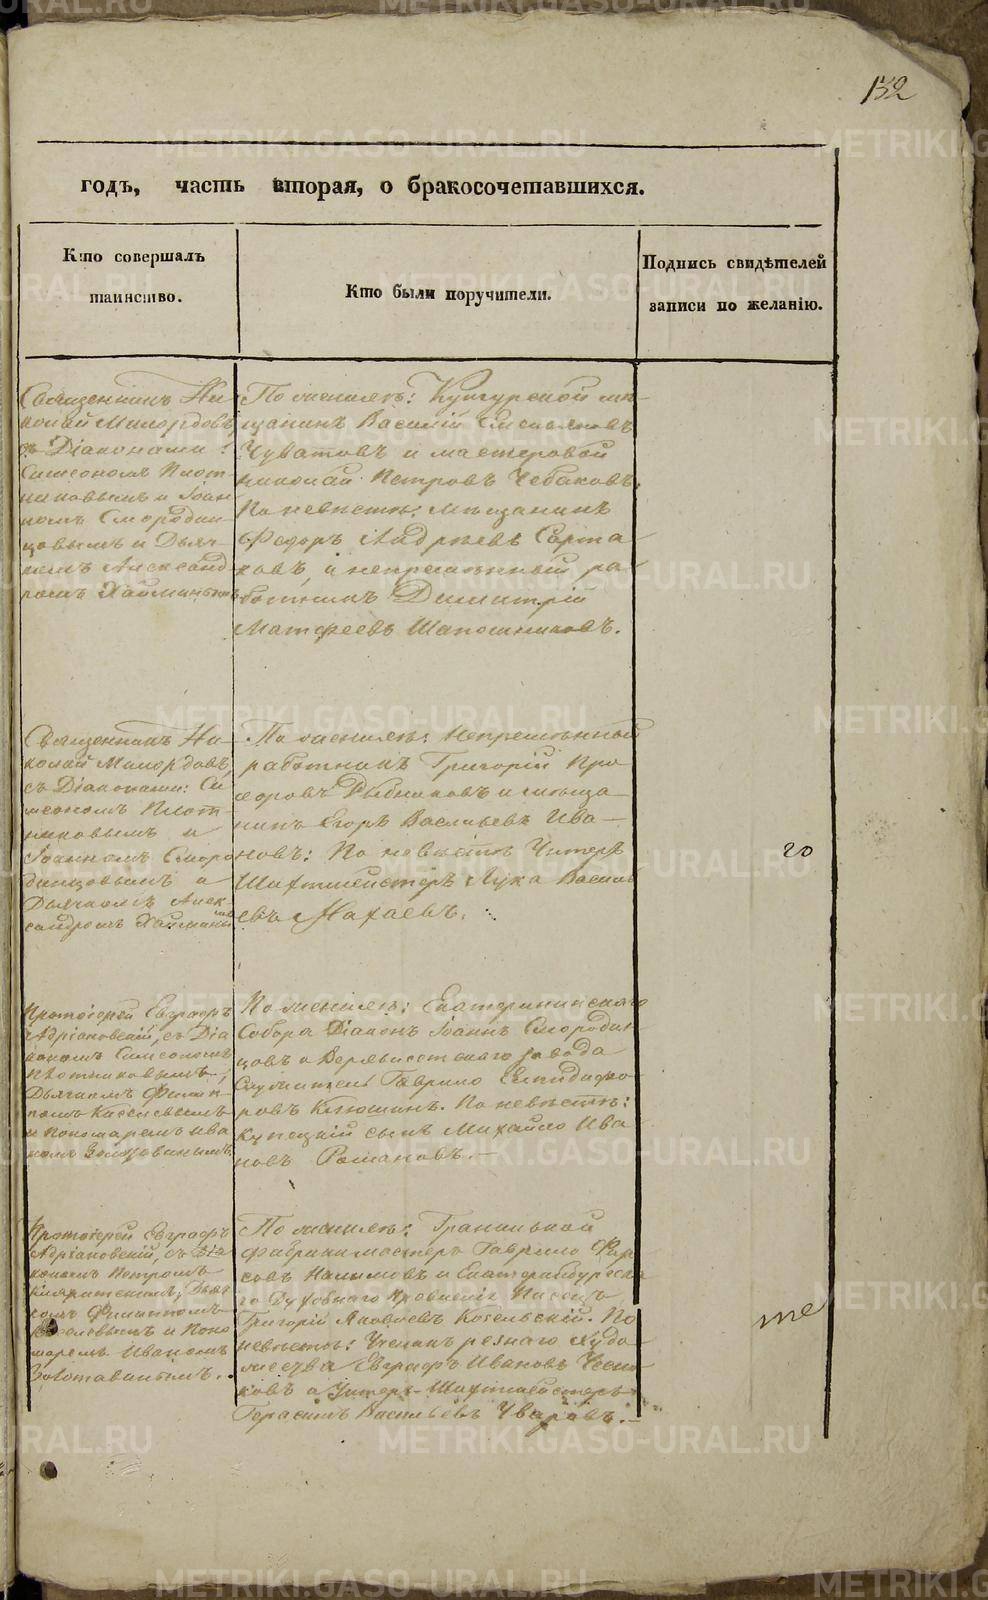 132
годъ, часть вторая, о бракосочетавшихся.
Кто совершалъ
таинство.
Кто были поручители.
Подпись свидѣтелей
записи по желанію.
Священникъ Ни-
колай Милордовъ
съ Діаконами:
Симеономъ Плот
никовымъ и Іоан
номъ Смородин-
цовымъ и Дьяч-
комъ Александ
ромъ
По женихѣ: Кунгурской мѣ-
щанинъ Василій
Чуватовъ и мастеровой
Николай Петровъ Чебаковъ.
По невѣстѣ: мѣщанинъ
Федоръ Андреевъ Сарта
ковъ, и непремѣнный ра-
ботникъ Димитрій
Матфеевъ Шапошниковъ.
Священникъ Ни-
колай Милордовъ,
съ Діаконами: Си
меономъ Плот
никовымъ и
Іоанномъ Сморо
динцовымъ и
Дьячкомъ Алек-
сандромъ
По женихѣ: Непремѣнной
работникъ Григорій Про
хоровъ Рыбниковъ и мѣща
нинъ Егоръ Васильевъ Ива-
новъ: По невѣстѣ Унтеръ
Шихтмейстеръ Лука Василь
евъ Махаевъ.
го
Протоіерей Евграфъ
Адріановскій, съ Діа
кономъ Симеономъ
Плотниковымъ,
Дьячкомъ Филип-
помъ Киселевымъ
и Пономаремъ Ива
номъ Золотавинымъ.
По женихѣ: Екатерининскаго
Собора Діаконъ Іоаннъ Смородин-
цовъ и Верхъисетскаго завода
Служитель Гаврило
ровъ Клюшинъ. По невѣстѣ:
Купецкій сынъ Михайло Ива
новъ Романовъ.
Протоіерей Евграфъ
Адріановскій, съ Діа
кономъ Петромъ
Дьяч
комъ Филиппомъ
Киселевымъ и Поно
маремъ Иваномъ
Золотавинымъ.
По женихѣ: Гранильной
фабрики мастеръ Гаврило Фир
совъ Налимовъ и Екатеринбургска
го Духовнаго Правленія Писецъ
Григорій Яковлевъ Козельскій. По
невѣстѣ: Ученикъ рѣзнаго Худо
жества Евграфъ Ивановъ Чесно
ковъ и Унтеръ-Шихтмейстеръ
Герасимъ Васильевъ Уваровъ.
те
METRIKI.GASO-URAL.RU